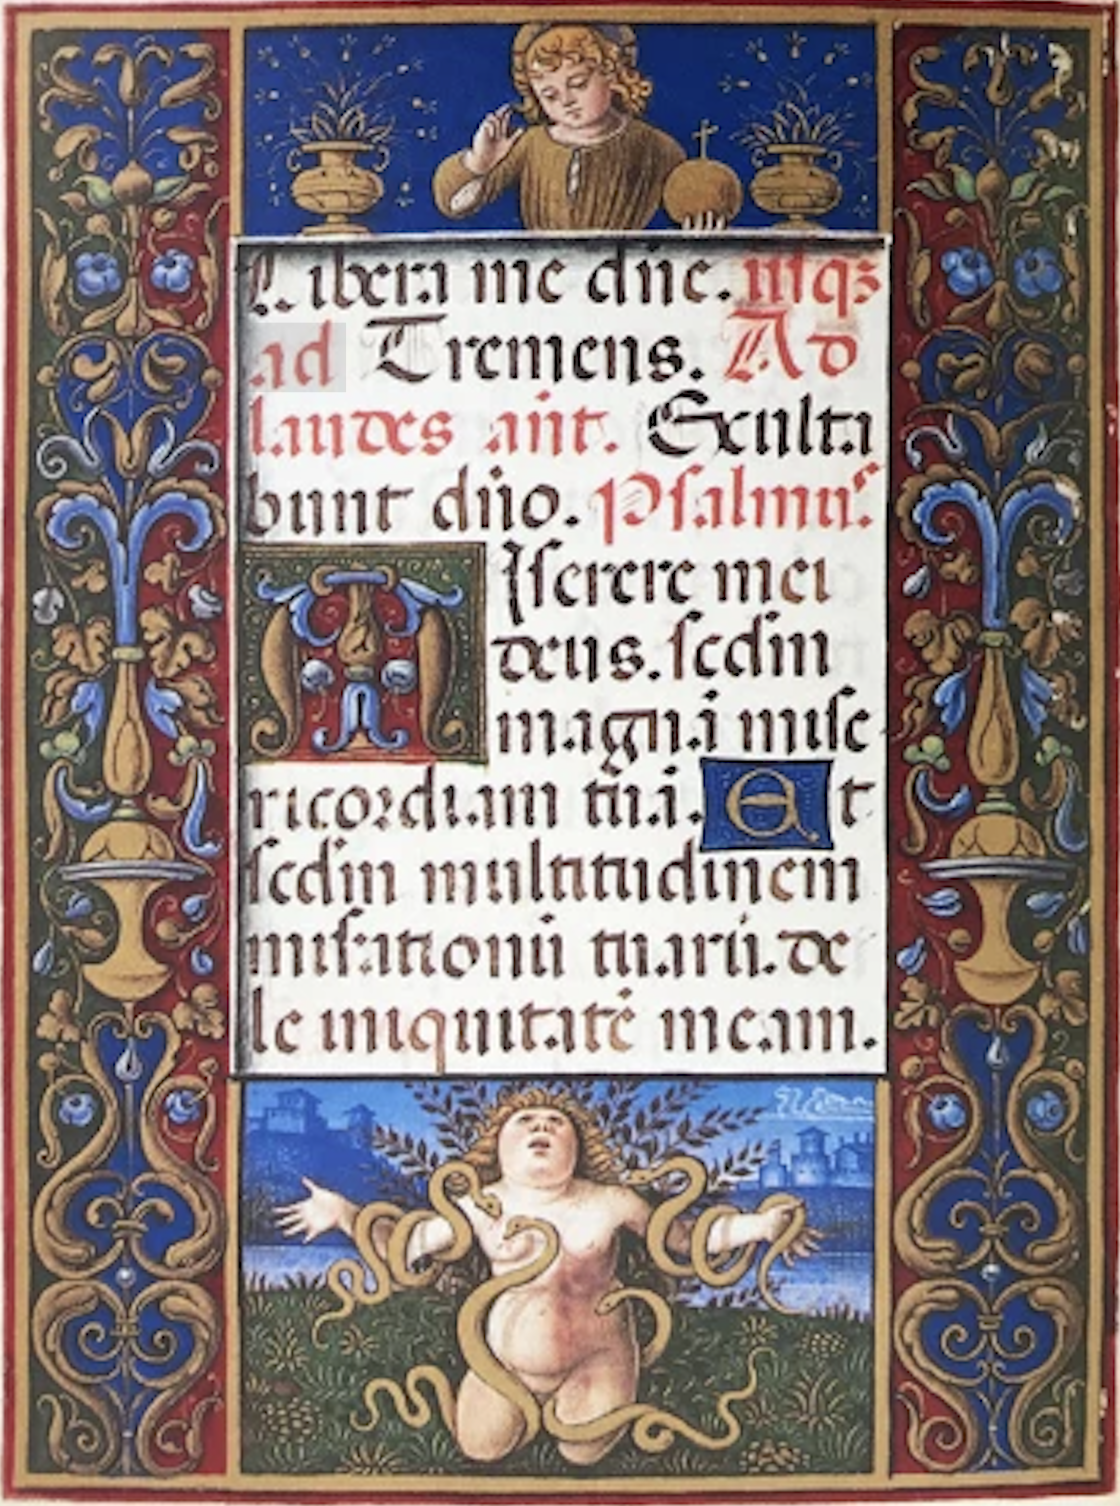 Libera me dñe. usq;
ad Tremens. Ad
laudes añt. Exulta
bunt dño. Psalmus.
Iserere mei
deus. scdm
magnā mise
ricordiam tuā. Et
scdm multitudinem
misationū tuarū. de
le iniquitatē meam.